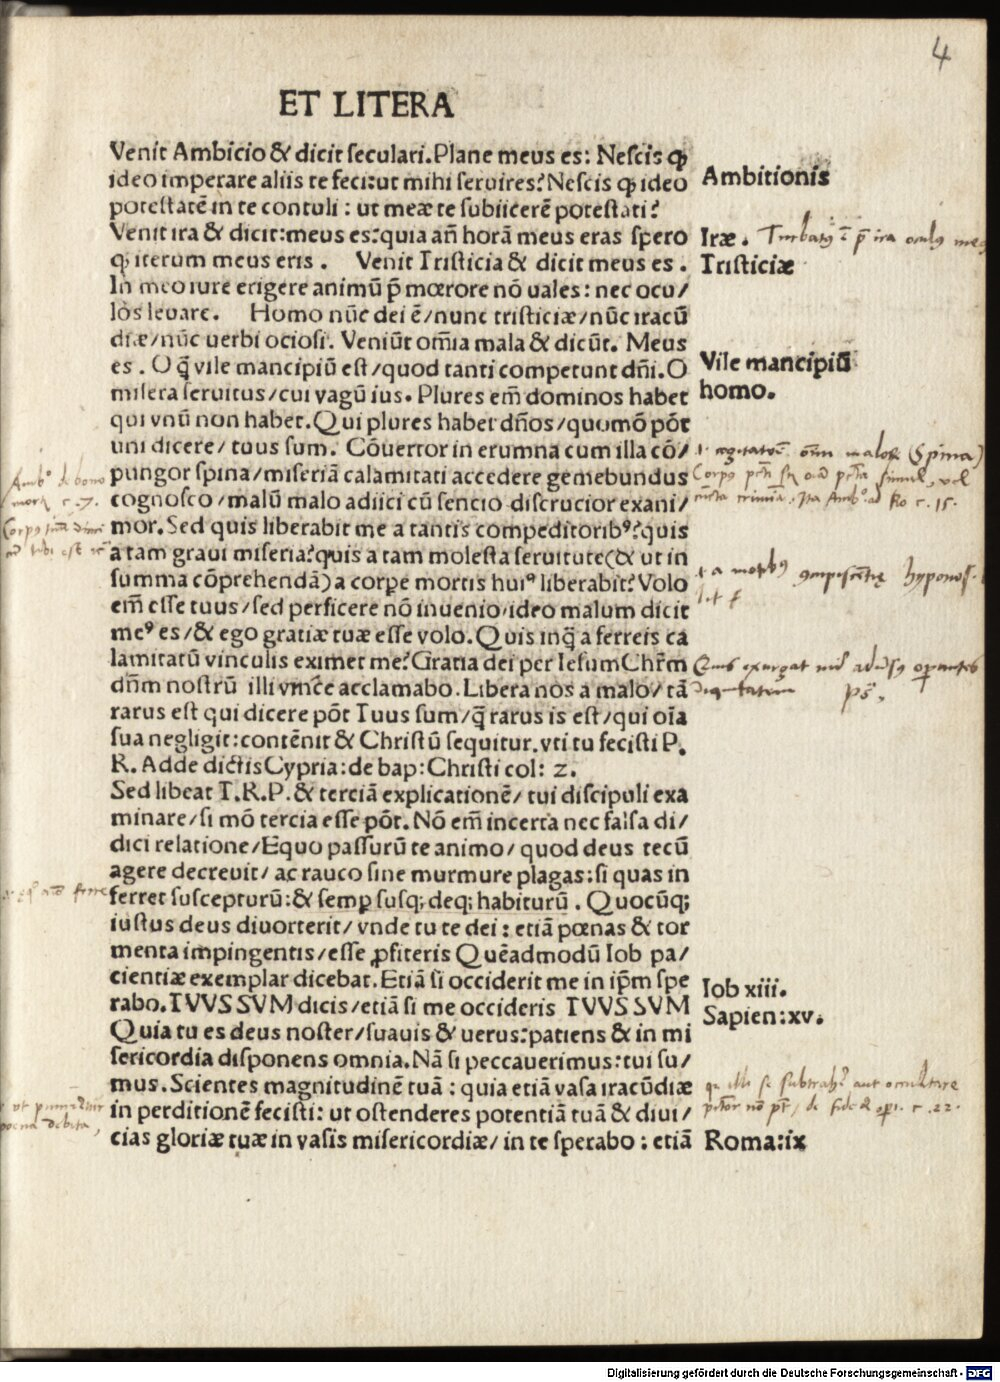 4
ET LITERA
Venit Ambicio & dicit seculari. Plane meus es: Nescis ꝙ
ideo imperare aliis te feci: ut mihi seruires? Nescis ꝙ ideo
potestatē in te contuli: ut meæ te subiicerē potestati?
Ambitionis
Venit ira & dicit: meus es: quia añ horā meus eras spero
Iræ. Turbatꝰ ē p̄ ira oculꝰ meꝰ
ꝙ iterum meus eris. Venit Tristicia & dicit meus es.
Tristiciæ
In meo iure erigere animū p̄ mœrore nō uales: nec ocu/
lōs leuare. Homo nūc dei ē/ nunc tristiciæ/ nūc iracū
diæ/ nūc uerbi ociosi. Veniūt oīma mala & dicūt. Meus
es. O q̄ vile mancipiū est/ quod tanti competunt dñi. O
Vile mancipiū
misera seruitus/ cui vagū ius. Plures em̄ dominos habet
homo.
qui vnū non habet. Qui plures habet dños/ quomō pōt
uni dicere/ tuus sum. Cōuertor in erumna cum illa cō/
pungor spina/ miseriā calamitati accedere gemebundus
cognosco/ malū malo adiici cū sencio discrucior exani/
mor. Sed quis liberabit me a tantis compeditoribꝰ? quis
a tam graui miseria? quis a tam molesta seruitute (& ut in
summa cōprehendā) a corpe mortis huiꝰ liberabit? Volo
em̄ esse tuus/ sed perficere nō inuenio, ideo malum dicit
meꝰ es/ & ego gratiæ tuæ esse volo. Quis inq̄ a ferreis ca
lamitatū vinculis eximet me? Gratia dei per Iesum Chr̄m
dn̄m nostrū illi vnīce acclamabo. Libera nos a malo/ tā
rarus est qui dicere pōt Tuus sum/ q̄ rarus is est/ qui oīa
sua negligit: contēnit & Christū sequitur. vti tu fecisti P.
R. Adde dictis Cypria: de bap: Christi col: 2.
Sed libeat T. R. P. & terciā explicationē/ tui discipuli exa
minare/ si mō tercia esse pōt. Nō em̄ incerta nec falsa di/
dici relatione/ Equo passurū te animo/ quod deus tecū
agere decreuit/ ac rauco sine murmure plagas: si quas in
ferret suscepturū: & semp susq; deq; habiturū. Quocūq;
iustus deus diuorterit/ vnde tu te dei: etiā pœnas & tor
menta impingentis/ esse ꝓfiteris Quēadmodū Iob pa/
cientiæ exemplar dicebat. Etiā si occiderit me in ip̄m spe
Iob xiii.
rabo. TVVS SVM dicis/ etiā si me occideris TVVS SVM
Sapien: xv.
Quia tu es deus noster/ suauis & uerus: patiens & in mi
sericordia disponens omnia. Nā si peccauerimus: tui su/
mus. Scientes magnitudinē tuā: quia etiā vasa iracūdiæ
in perditionē fecisti: ut ostenderes potentiā tuā & diui/
cias gloriæ tuæ in vasis misericordiæ/ in te sperabo: etiā
Roma: ix
Digitalisierung gefördert durch die Deutsche Forschungsgemeinschaft - DFG